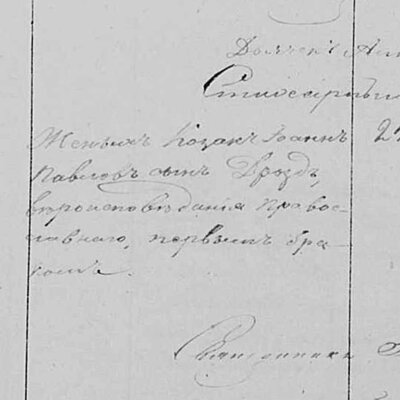 Женихъ Козакъ Іоаннъ 2
Павловъ сынъ Дроздъ,
вѣроисповѣданія право-
славнаго, первымъ бра-
комъ.
Священникъ